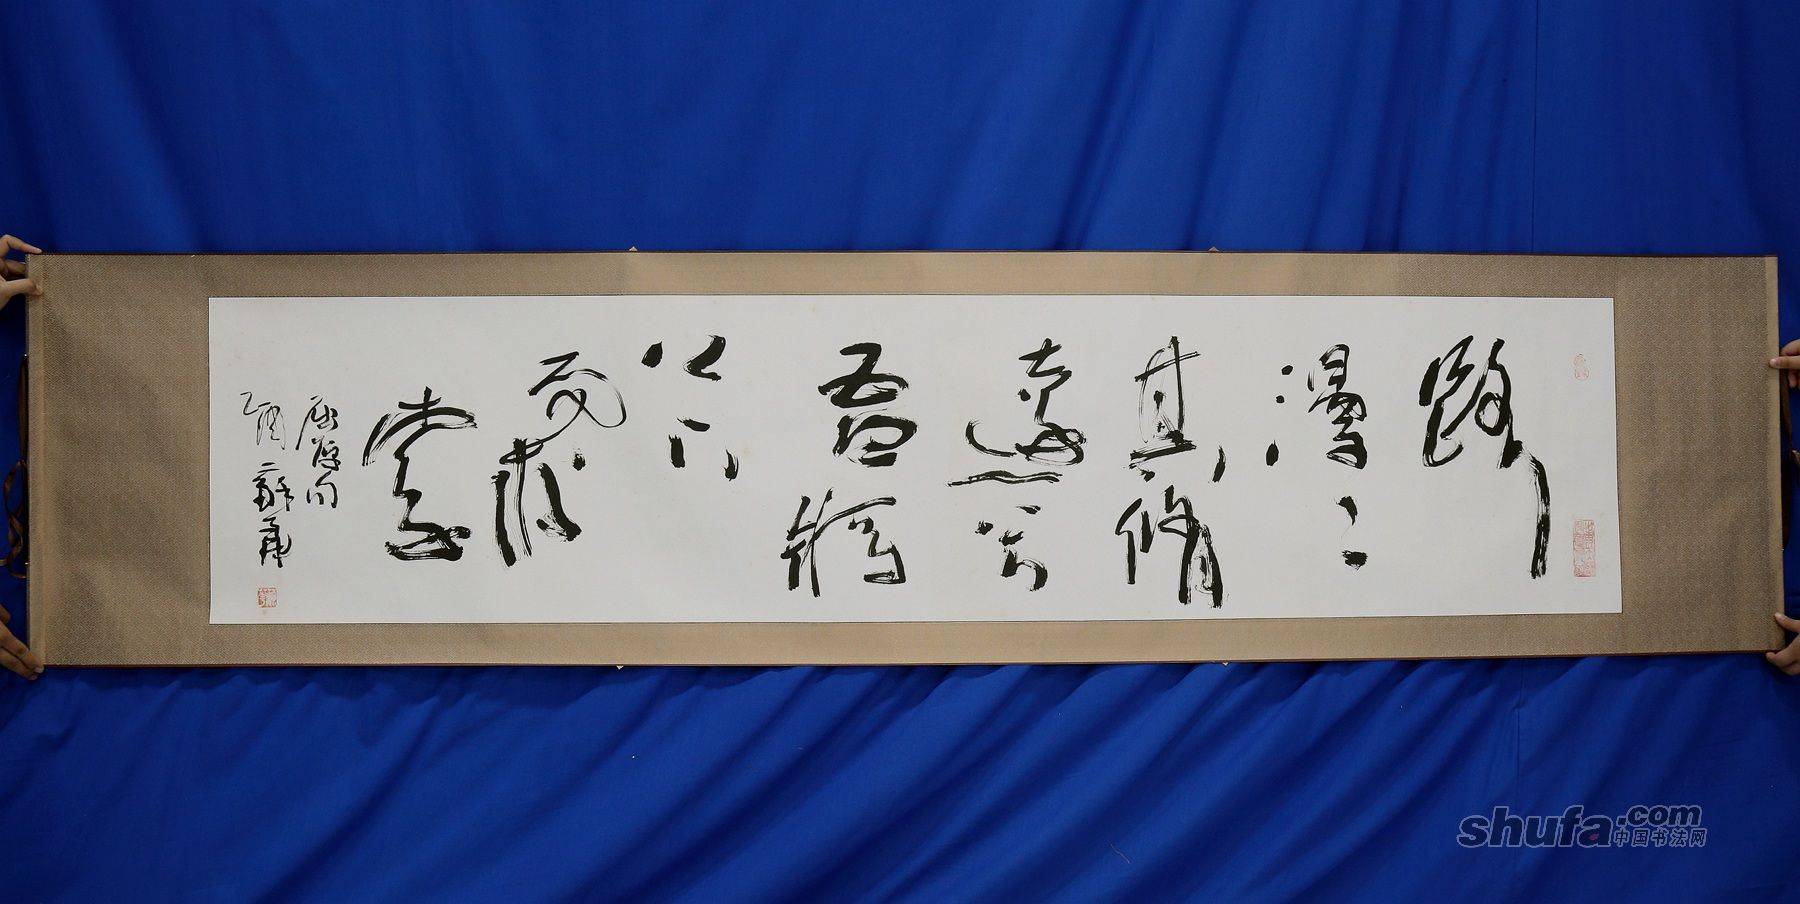 路
漫〻
其修
遠兮
吾將
上下
而求
索
屈原句
乙酉
shufa.com
中国书法网